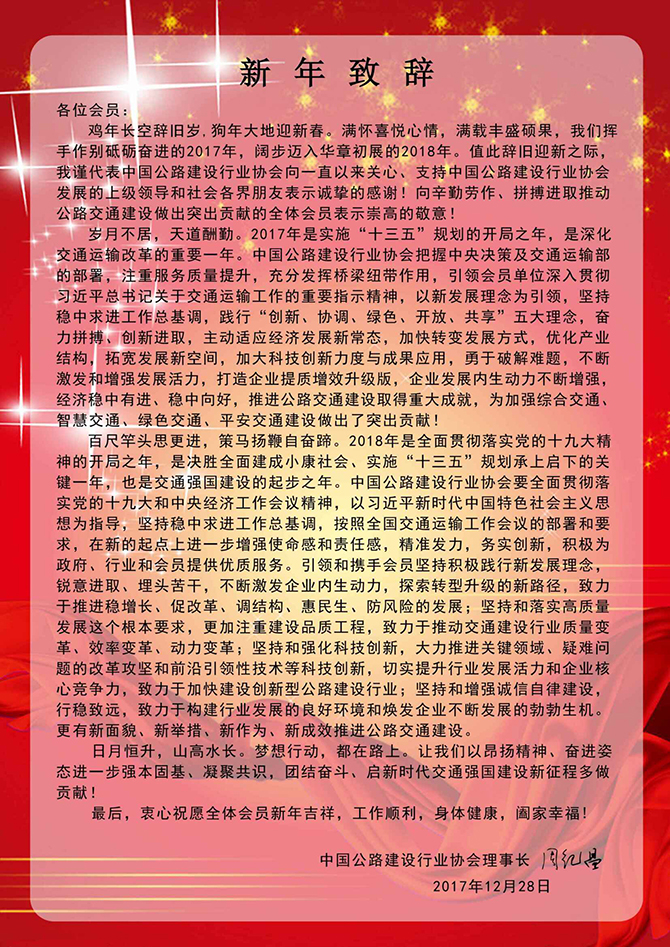 新年致辞
各位会员：
鸡年长空辞旧岁,狗年大地迎新春。满怀喜悦心情，满载丰盛硕果，我们挥
手作别砥砺奋进的2017年，阔步迈入华章初展的2018年。值此辞旧迎新之际，
我谨代表中国公路建设行业协会向一直以来关心、支持中国公路建设行业协会
发展的上级领导和社会各界朋友表示诚挚的感谢！向辛勤劳作、拼搏进取推动
公路交通建设做出突出贡献的全体会员表示崇高的敬意！
岁月不居，天道酬勤。2017年是实施“十三五”规划的开局之年，是深化
交通运输改革的重要一年。中国公路建设行业协会把握中央决策及交通运输部
的部署，注重服务质量提升，充分发挥桥梁纽带作用，引领会员单位深入贯彻
习近平总书记关于交通运输工作的重要指示精神，以新发展理念为引领，坚持
稳中求进工作总基调，践行“创新、协调、绿色、开放、共享”五大理念，奋
力拼搏、创新进取，主动适应经济发展新常态，加快转变发展方式，优化产业
结构，拓宽发展新空间，加大科技创新力度与成果应用，勇于破解难题，不断
激发和增强发展活力，打造企业提质增效升级版，企业发展内生动力不断增强，
经济稳中有进、稳中向好，推进公路交通建设取得重大成就，为加强综合交通、
智慧交通、绿色交通、平安交通建设做出了突出贡献！
百尺竿头思更进，策马扬鞭自奋蹄。2018年是全面贯彻落实党的十九大精
神的开局之年，是决胜全面建成小康社会、实施“十三五”规划承上启下的关
键一年，也是交通强国建设的起步之年。中国公路建设行业协会要全面贯彻落
实党的十九大和中央经济工作会议精神，以习近平新时代中国特色社会主义思
想为指导，坚持稳中求进工作总基调，按照全国交通运输工作会议的部署和要
求，在新的起点上进一步增强使命感和责任感，精准发力，务实创新，积极为
政府、行业和会员提供优质服务。引领和携手会员坚持积极践行新发展理念，
锐意进取、埋头苦干，不断激发企业内生动力，探索转型升级的新路径，致力
于推进稳增长、促改革、调结构、惠民生、防风险的发展；坚持和落实高质量
发展这个根本要求，更加注重建设品质工程，致力于推动交通建设行业质量变
革、效率变革、动力变革；坚持和强化科技创新，大力推进关键领域、疑难问
题的改革攻坚和前沿引领性技术等科技创新，切实提升行业发展活力和企业核
心竞争力，致力于加快建设创新型公路建设行业；坚持和增强诚信自律建设，
行稳致远，致力于构建行业发展的良好环境和焕发企业不断发展的勃勃生机。
更有新面貌、新举措、新作为、新成效推进公路交通建设。
日月恒升，山高水长。梦想行动，都在路上。让我们以昂扬精神、奋进姿
态进一步强本固基、凝聚共识，团结奋斗、启新时代交通强国建设新征程多做
贡献！
最后，衷心祝愿全体会员新年吉祥，工作顺利，身体健康，阖家幸福！
中国公路建设行业协会理事长 周纪昌
2017年12月28日